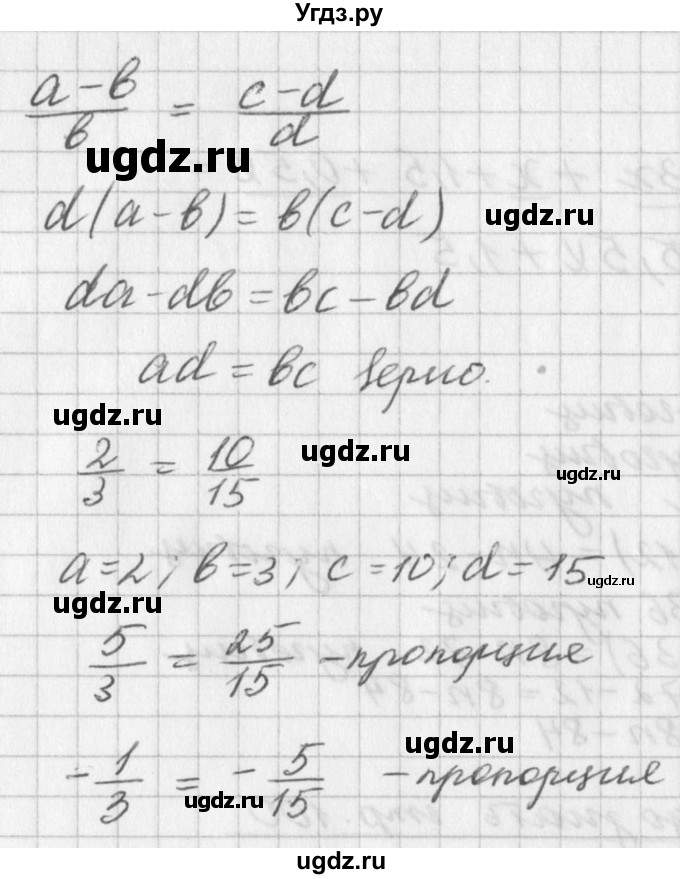 Угдз.ру
a-b/b = c-d/d
ugdz.ru
d(a-b)=b(c-d)
ugdz.ru
da-db=bc-bd
ad=bc верно.
ugdz.ru
2/3 = 10/15
ugdz.ru
ugdz.ru
a=2; b=3; c=10; d=15
ugdz.ru
ugdz.ru
5/3 = 25/15 - пропорция
ugdz.ru
-1/3 = -5/15 - пропорция
ugdz.ru
ugdz.ru